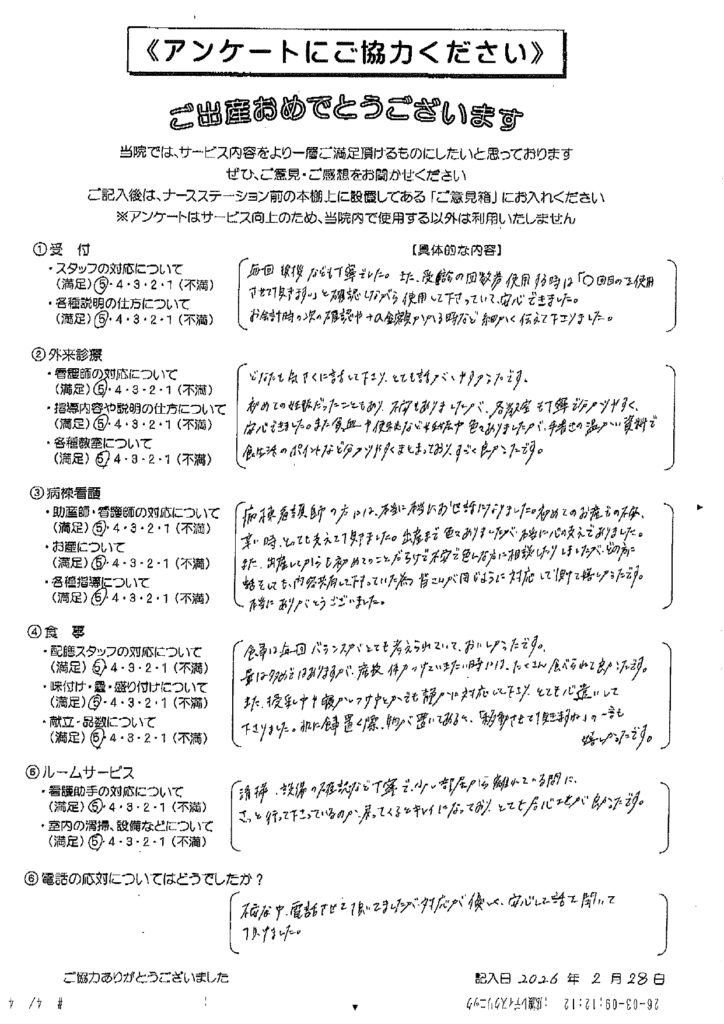 《アンケートにご協力ください》
ご出産おめでとうございます
当院では、サービス内容をより一層ご満足頂けるものにしたいと思っております
ぜひ、ご意見・ご感想をお聞かせください
ご記入後は、ナースステーション前の本棚上に設置してある「ご意見箱」にお入れください
※アンケートはサービス向上のため、当院内で使用する以外は利用いたしません
①受　付
【具体的な内容】
・スタッフの対応について
(満足) 5・4・3・2・1 (不満)
・各種説明の仕方について
(満足) 5・4・3・2・1 (不満)
毎回 挨拶 なども丁寧でした。また、受診の回数券 使用する時は「○回目の を使用
させて頂きます」と確認しながら 使用して下さっていて、安心できました。
お会計時の次の確認や 金額がかかる時など 細かく 伝えて下さりました。
②外来診療
・看護師の対応について
(満足) 5・4・3・2・1 (不満)
・指導内容や説明の仕方について
(満足) 5・4・3・2・1 (不満)
・各種教室について
(満足) 5・4・3・2・1 (不満)
どなたも気さくに話して下さり、とても話がしやすかったです。
初めての妊娠だったこともあり、不安もありましたが、各教室 も丁寧で分かりやすく、
安心できました。また 貧血や 便秘など 妊娠中 色々ありましたが、手書きの温かい 資料で
食生活の ポイントなど分かりやすくまとまっており、すごく良かったです。
③病棟看護
・助産師・看護師の対応について
(満足) 5・4・3・2・1 (不満)
・お産について
(満足) 5・4・3・2・1 (不満)
・各種指導について
(満足) 5・4・3・2・1 (不満)
病棟看護師 の方には、本当に本当にお世話になりました。初めてのお産での不安、
辛い時、とても支えて頂きました。出産まで 色々ありましたが、本当に心の支えでありました。
また、出産してからも初めてのことだらけで不安で色んな方に相談したりしましたが、親切に
話をして、内容共有して下さっていた為 皆さんが同じように 対応して頂けて嬉しかったです。
本当に ありがとうございました。
④食　事
・配膳スタッフの対応について
(満足) 5・4・3・2・1 (不満)
・味付け・量・盛り付けについて
(満足) 5・4・3・2・1 (不満)
・献立・品数について
(満足) 5・4・3・2・1 (不満)
食事は毎回 バランスがとても考えられていて、おいしかったです。
量は多めではありますが、産後 体力つけていきたい時には、たくさん 食べられて良かったです。
また、授乳中や寝かしつけ中とかでも 静かに対応して下さり、とても心遣いして
下さりました。机に食事 置く際、物が 置いてあると、「移動させて頂きますね」の 一言も
嬉しかったです。
⑤ルームサービス
・看護助手の対応について
(満足) 5・4・3・2・1 (不満)
・室内の清掃、設備などについて
(満足) 5・4・3・2・1 (不満)
清掃、設備の確認など丁寧で、少し部屋から離れている間に、
さっと行って下さっているのか、戻ってくるとキレイになっており、とても居心地が良かったです。
⑥電話の応対についてはどうでしたか？
不安な中、電話させて頂いてましたが、対応が 優しく、安心して話を聞いて
頂けました。
ご協力ありがとうございました
記入日 2026 年 2 月 28 日
26-03-09;12:12
# 4/ 4